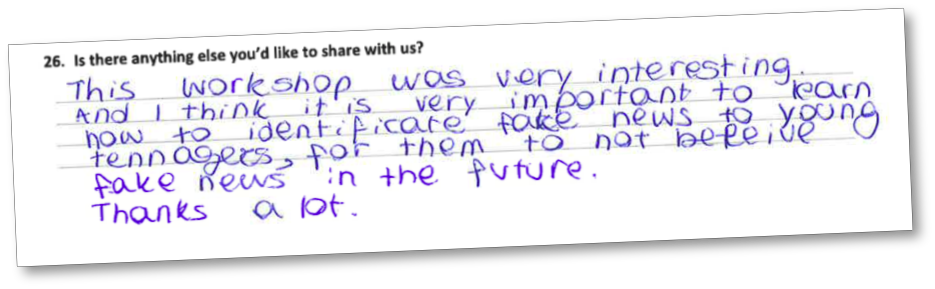 26. Is there anything else you'd like to share with us?
This workshop was very interesting.
And I think it is very important to learn
how to identificate fake news to young
tennagers, for them to not beleive
fake news in the future.
Thanks a lot.